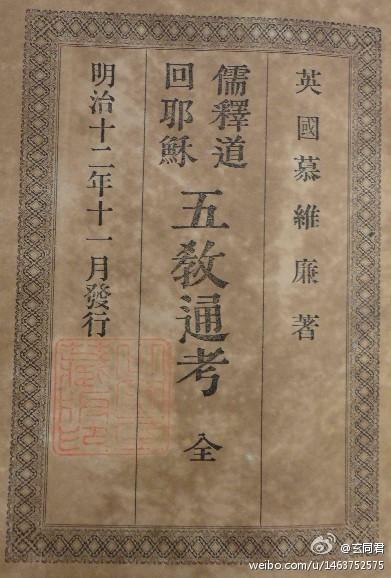 英國慕維廉著
儒釋道
回耶穌
五教通考 全
明治十二年十一月發行
@玄同君
weibo.com/u/1463752575